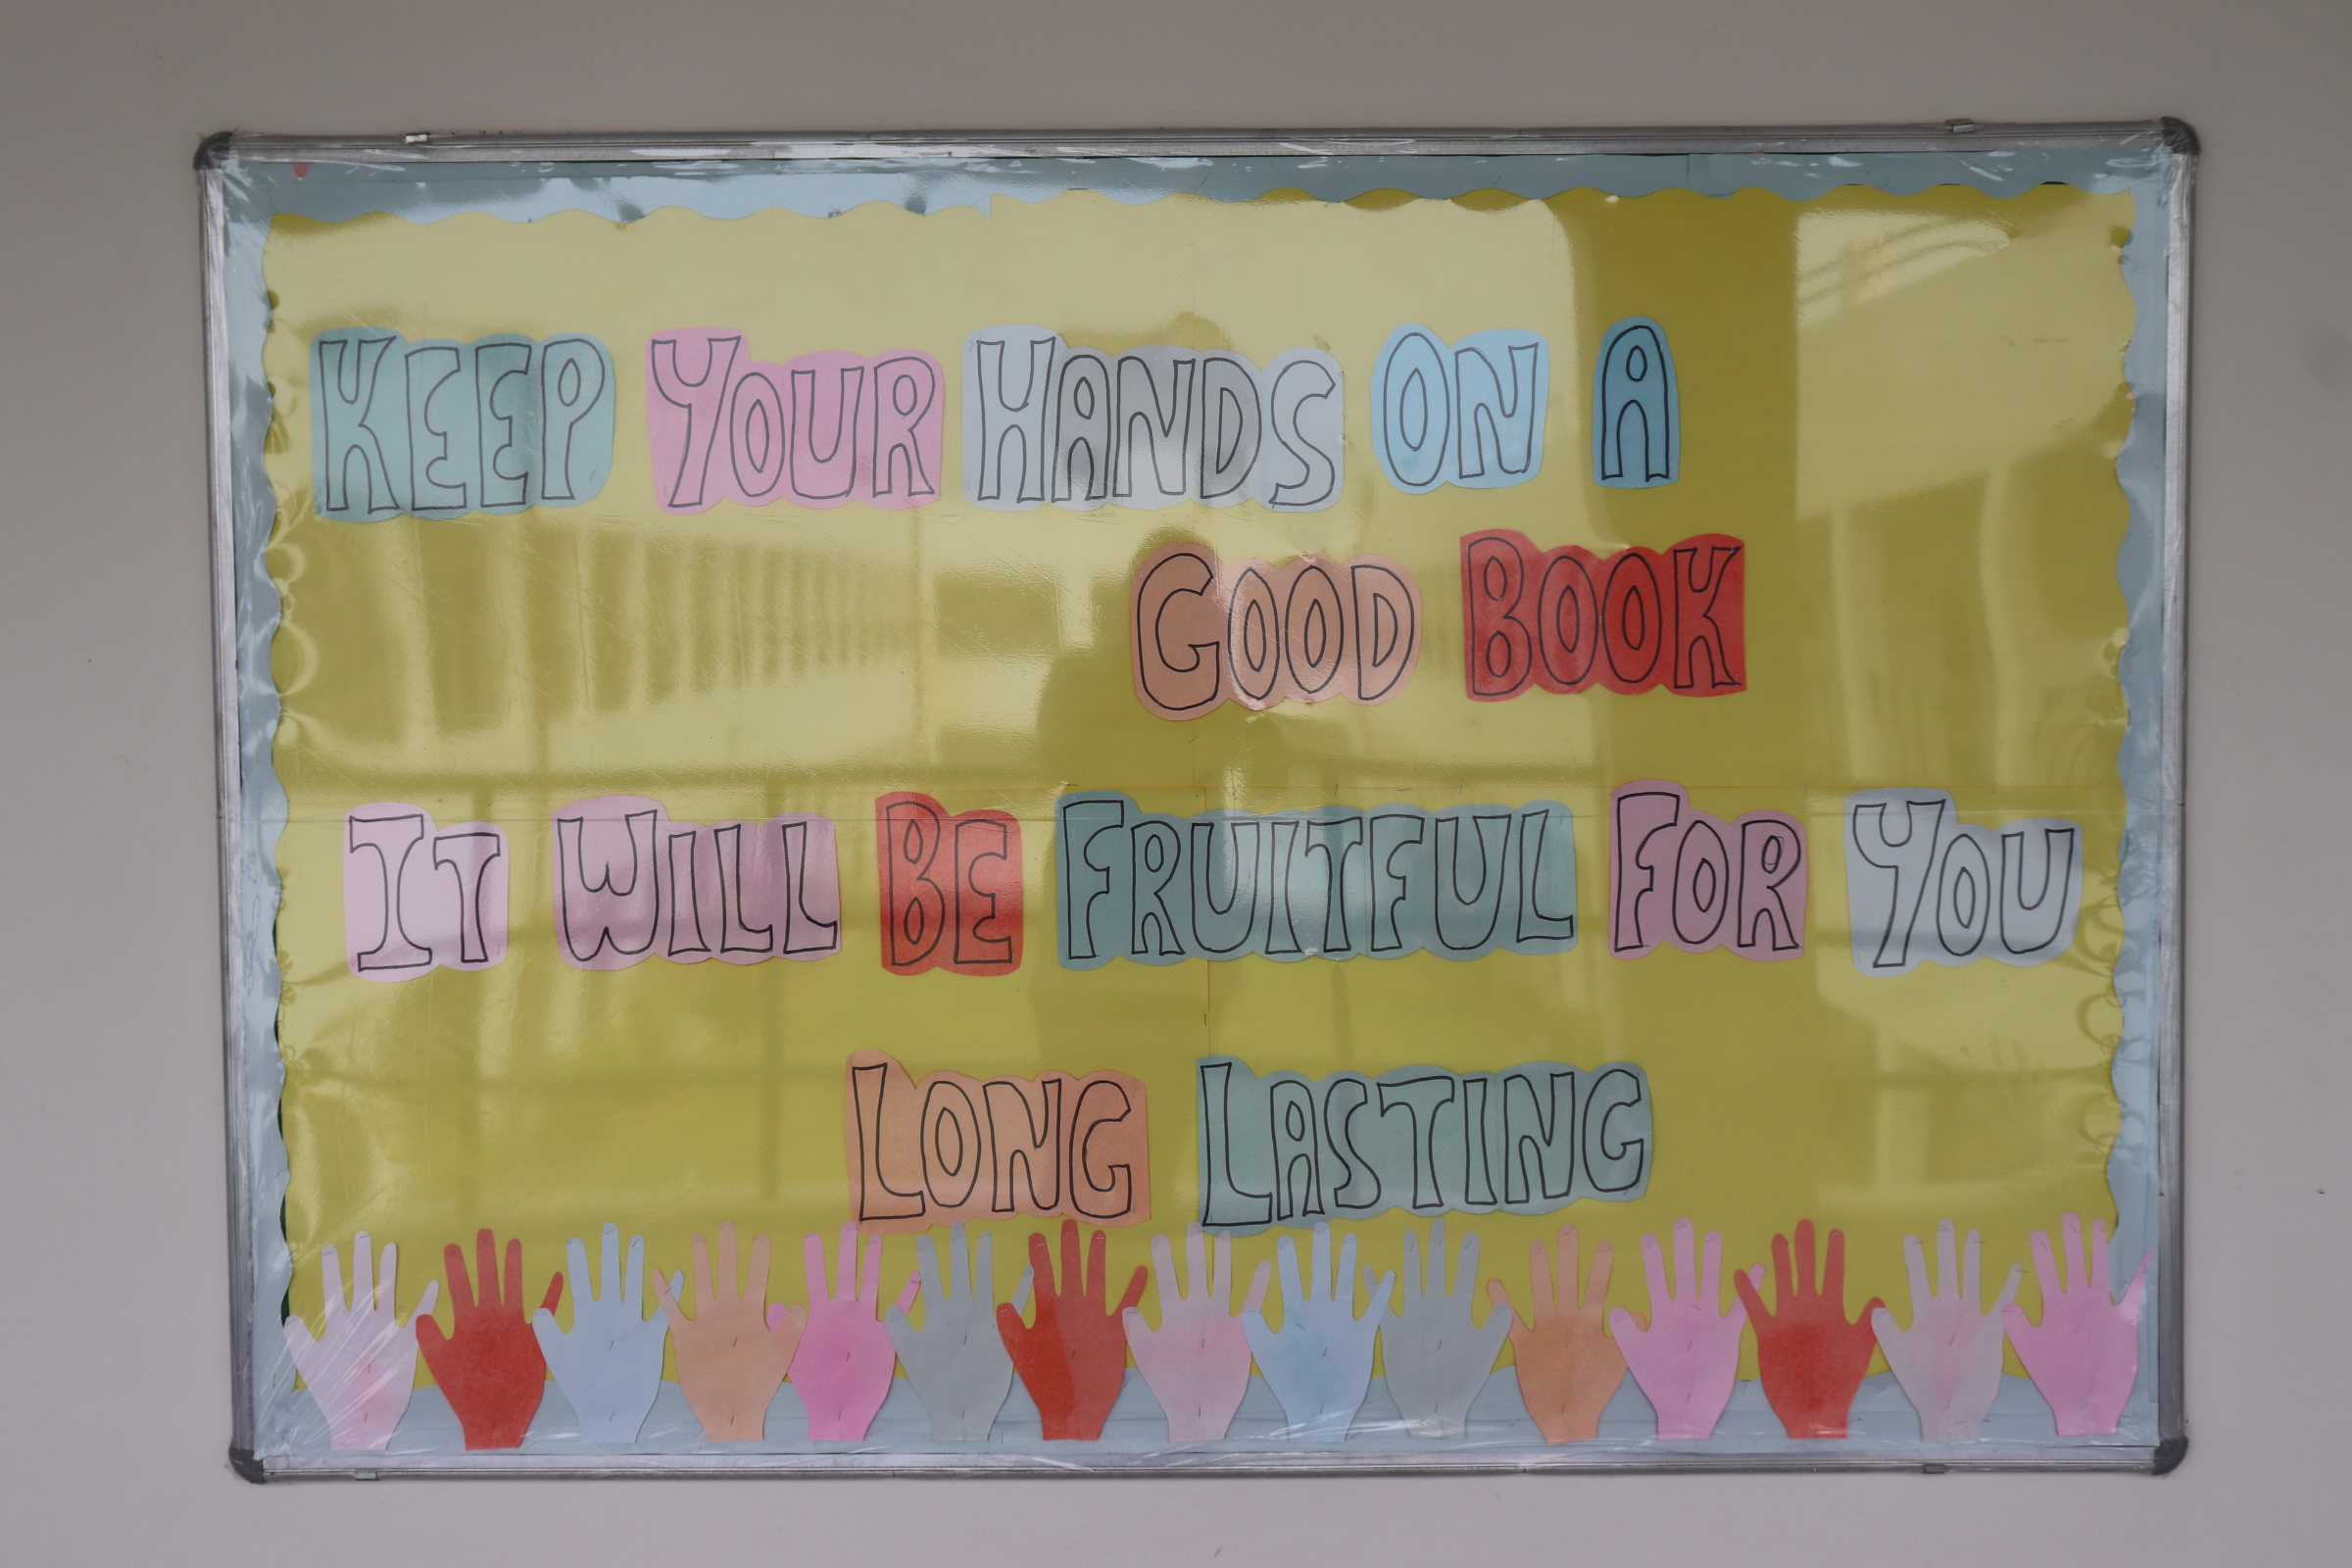 KEEP YOUR HANDS ON A
GOOD BOOK
IT WILL BE FRUITFUL FOR YOU
LONG LASTING